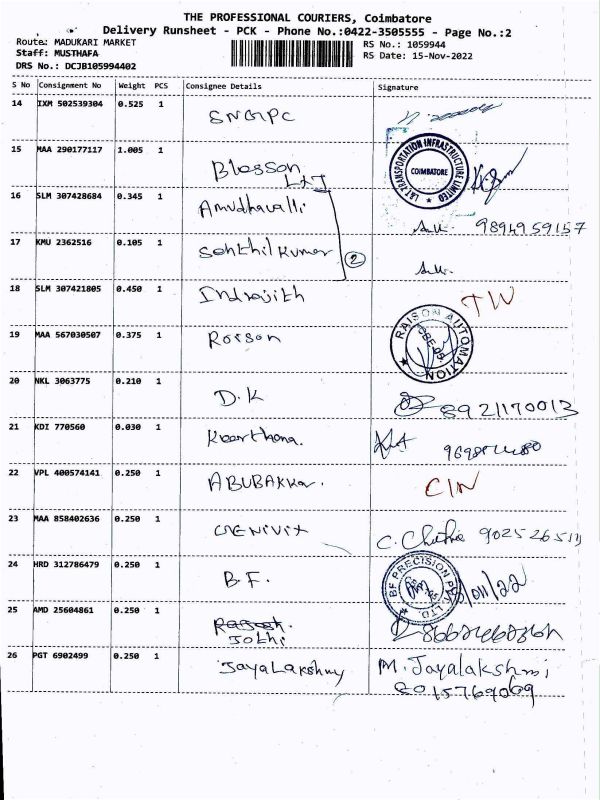 THE PROFESSIONAL COURIERS, Coimbatore
Delivery Runsheet - PCK - Phone No.:0422-3505555 - Page No.:2
Route: MADUKARI MARKET
Staff: MUSTHAFA
DRS No.: DCJB105994402
RS No.: 1059944
RS Date: 15-Nov-2022
S No Consignment No Weight PCS Consignee Details Signature
14 IXM 502539304 0.525 1 SNGIPC
15 MAA 290177117 1.005 1 Blosson L&T
L&T TRANSPORTATION INFRASTRUCTURE LIMITED
COIMBATORE
16 SLM 307428684 0.345 1 Amudhavalli 9894959157
17 KMU 2362516 0.105 1 Senthil Kumar 2
18 SLM 307421805 0.450 1 Indrajith TW
19 MAA 567030507 0.375 1 Rorson
RAISON AUTOMATION
20 NKL 3063775 0.210 1 D.K 8921170013
21 KDI 770560 0.030 1 Keerthana.
22 VPL 400574141 0.250 1 ABUBAKKar. CIN
23 MAA 858402636 0.250 1 C.
24 HRD 312786479 0.250 1 B.F.
BF PRECISION PVT. LTD.
25 AMD 25604861 0.250 1 Jothi
26 PGT 6902499 0.250 1 Jayalakshmy M. Jayalakshmi
8015769069